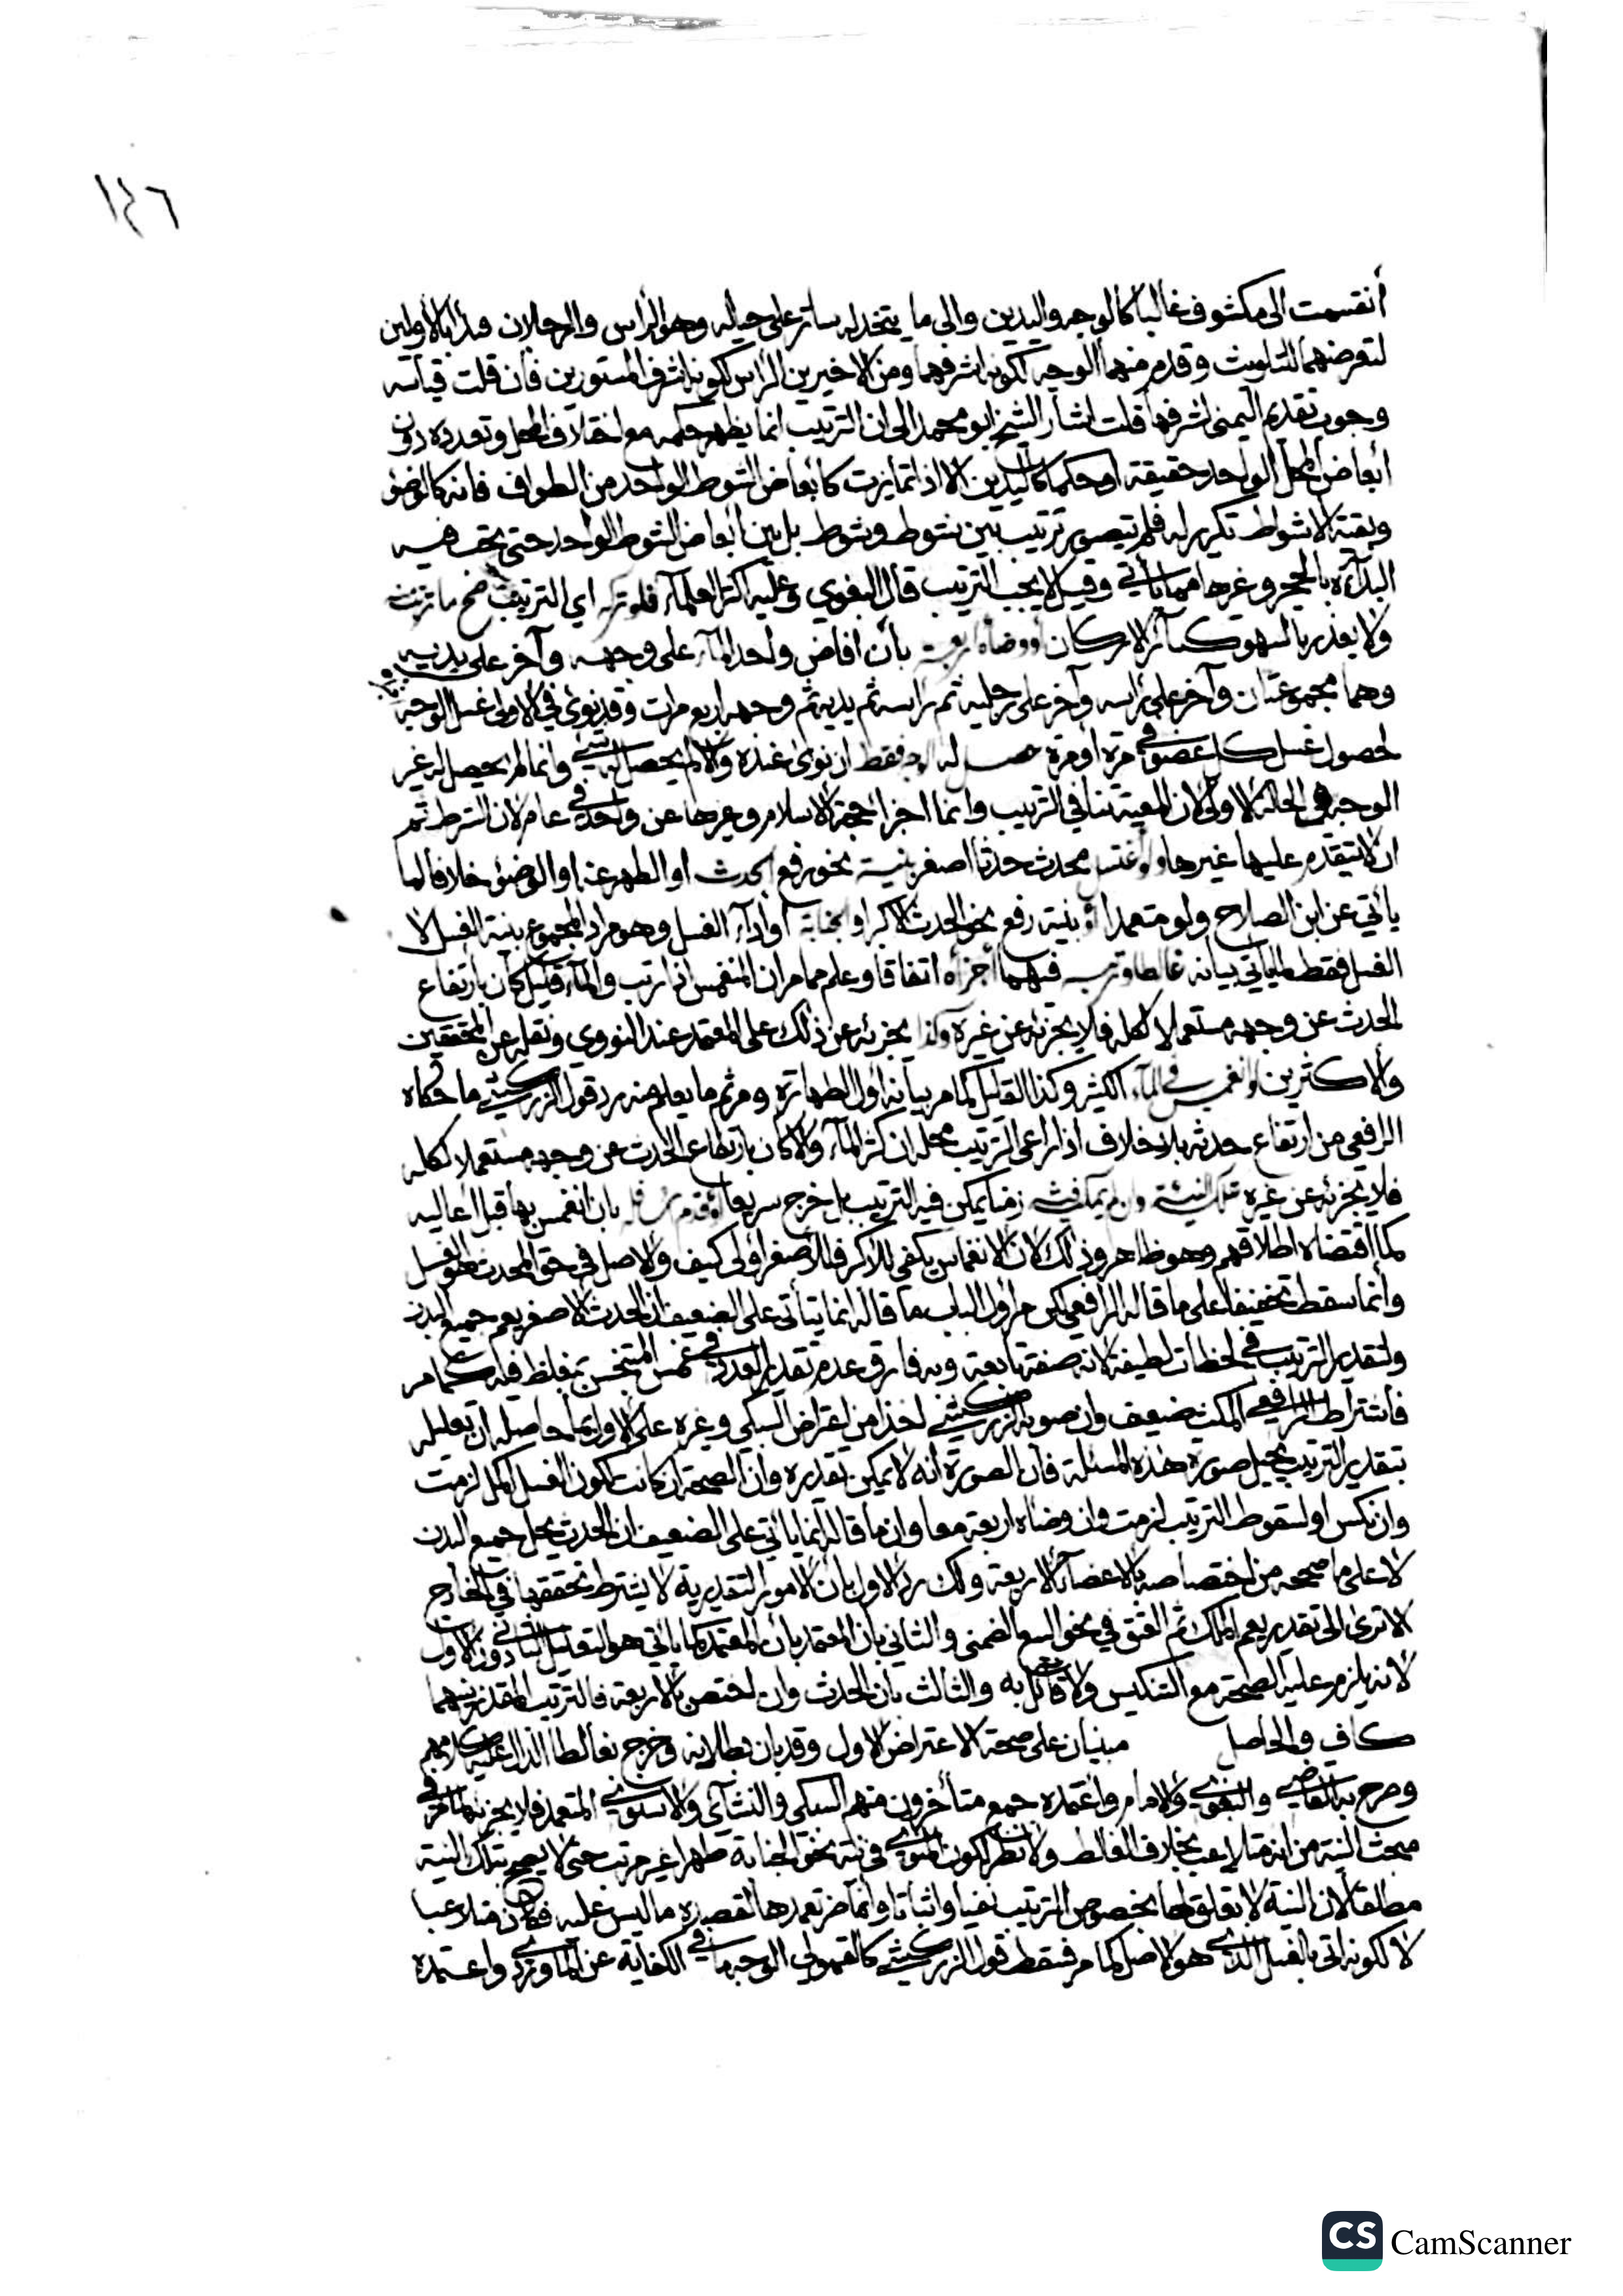 ١٤٦
أنقسمت الى مكشوف غالبا كالوجه واليدين والى ما يتخذ له ساتر على حياله وهو الرأس والرجلان فبدأ بالاولين
لتعرضهما للتلويث وقدم منهما الوجه لكونه اشرفهما ومن الاخيرين الرأس لكونه اشرف المستورين فان قلت قياسه
وجوب تقديم اليمنى لشرفها قلت اشار الشيخ ابو محمد الى ان الترتيب انما يظهر حكمه مع اختلاف المحل وتعدده دون
أبعاض المحل الواحد حقيقة او حكما كاليدين الا اذا تمايزت كأبعاض الشوط الواحد من الطواف فانه كالوضؤ
وبقية الاشواط تكرير له فلم يتصور ترتيب بين شوط وشوط بل بين ابعاض الشوط الواحد حتى يجب فيه
البدآءة بالحجر وغيرها مما يأتي وقيل لا يجب الترتيب قال البغوي وعليه اكثر العلمآء فلو تركه اي الترتيب صح ما رتبه
ولا يعذر بالسهو كسائر الاركان او وضأه اربعة بأن افاض واحد المآء على وجهه وآخر على يديه
وهما مجموعتان وآخر على رأسه وآخر على رجليه ثم رأسه ثم يديه ثم وجهه اربع مرات وقد نوى في الاولى غسل الوجه
لحصول غسل كل عضو في مرة او مرة حصل له الوجه فقط ان نوى عنده والا لم يحصل له شيء وانما لم يحصل له غير
الوجه في الحالة الاولى لان المعية تنافي الترتيب وانما اجزأ حجة الاسلام وغيرها عن واحد في عام لان الشرط ثم
ان لا يتقدم عليها غيرها ولو اغتسل محدث حدثا اصغر بنية نحو رفع الحدث او الطهر عنه او الوضوء خلافا لما
يأتي عن ابن الصلاح ولو متعمدا أو بنية رفع نحو الحدث الاكبر او الجنابة او أدآء الغسل وهو مراد المجموع بنية الغسل لا
الغسل فقط لما يأتي بيانه غالطا ورتب فيهما أجزأه اتفاقا وعلم مما مر ان المنغمس اذا رتب والمآء قليل كان بارتفاع
الحدث عن وجهه مستعملا لكله فلا يجزئه عن غيره وكذا يجزئه عن ذلك على المعتمد عند النووي ونقله عن المحققين
والاكثرين ان انغمس في المآء الكثير وكذا القليل كما مر بيانه اول الطهارة ومر ثم ما يعلم منه رد قول الزركشي ما حكاه
الرافعي من ارتفاع حدثه بلا خلاف اذا راعى الترتيب محله ان كثر المآء والا كان بارتفاع الحدث عن وجهه مستعملا لكله
فلا يجزئه عن غيره تلك النية وان لم يمكث زمنا يمكن فيه الترتيب بل خرج سريعا او قدم اسافله بان انغمس بها قبل أعاليه
كما اقتضاه اطلاقهم وهو ظاهر وذلك لان الانغماس يكفي للاكبر فللأصغر أولى كيف والاصل في حق المحدث هو الغسل
وانما سقط تخفيفا على ما قاله الرافعي لكن مر اول الباب ما قاله انما يتأتى على الضعيف ان الحدث الاصغر يعم جميع البدن
ولتقدير الترتيب في لحظات لطيفة لانه صفة تابعة وبه فارق عدم تقدير العدد في غمس المتنجس بمغلظ فيه كما مر
فاشتراط الرافعي المكث ضعيف وان صوبه الزركشي اخذا من اعتراض السبكي وغيره على الاول بما حاصله ان تعليله
بتقدير الترتيب يحيل صورة هذه المسئلة فان الصورة انه لا يمكن تقديره وان الصحة ان كانت لكون الغسل اكمل لزمت
وان نكس او لسقوط الترتيب لزمت وان وضأه اربعة معا وان ما قاله انما يأتي على الضعيف ان الحدث يحل جميع البدن
لا على ما صححه من اختصاصه بالاعضآء الاربعة ولك رد الاول بان الامور التقديرية لا يشترط تحققها في الخارج
الا ترى الى تقديرهم الملك ثم العتق في نحو البيع الضمني والثاني بان المعتمد بان المعتمد كما يأتي هو التعليل الثاني دون الاول
لانه يلزم عليه الصحة مع التنكيس ولا قائل به والثالث بان الحدث وان اختص بالاربعة فالترتيب المقدر فيهما
كاف والحاصل مبنيان على صحة الاعتراض الاول وقد بان بطلانه وخرج بغالطا الدال عليه كلامهم
وصرح به القاضي والبغوي والامام واعتمده جمع متأخرون منهم السبكي والنشآئي والاسنوي المتعمد فلا يجزئه لما مر في
مبحث النية من انه متلاعب بخلاف الغالط ولا نظر لكون المنوي في نية نحو الجنابة طهرا غير مرتب حتى لا يصح بتلك النية
مطلقا لان النية لا تعلق لها بخصوص الترتيب نفيا واثباتا وانما ضر تعمدها لقصده ما ليس عليه فكان متلاعبا
لا لكونه اتى بالغسل الذي هو الاصل كما مر فسقط قول الزركشي كالقمولي الوجه ما في الكفاية عن الماوردي واعتمده
CS CamScanner